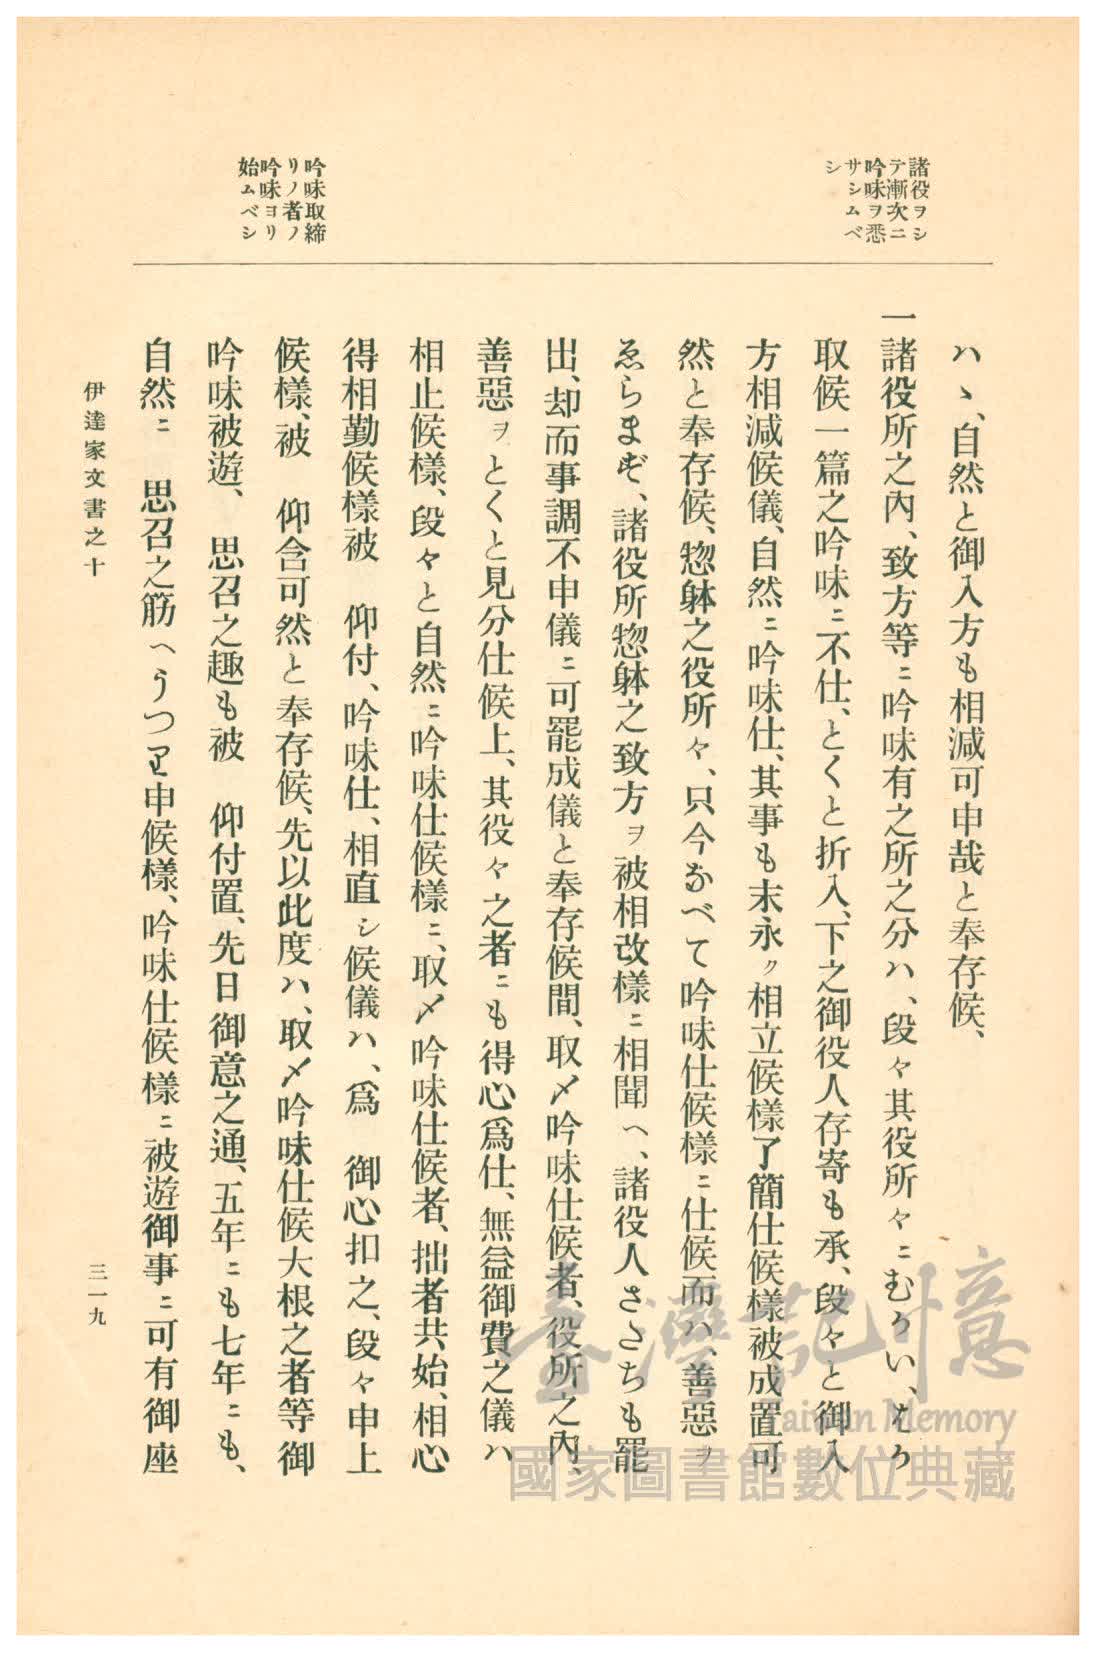 諸役ヲシ
テ漸次ニ
吟味ヲ悉
サシムベ
シ
吟味取締
リノ者ノ
吟味ヨリ
始ムベシ
ハヽ、自然と御入方も相減可申哉と奉存候、
一諸役所之內、致方等ニ吟味有之所之分ハ、段々其役所々ニむかい、はか
取候一篇之吟味ニ不仕、とくと折入、下之御役人存寄も承、段々と御入
方相減候儀、自然ニ吟味仕、其事も末永ク相立候樣了簡仕候樣被成置可
然と奉存候、惣躰之役所々、只今なべて吟味仕候樣ニ仕候而ハ、善惡ヲ
ゑらまず、諸役所惣躰之致方ヲ被相改樣ニ相聞ヘ、諸役人さきたちも罷
出、却而事調不申儀ニ可罷成儀と奉存候間、取〆吟味仕候者、役所之內、
善惡ヲとくと見分仕候上、其役々之者ニも得心爲仕、無益御費之儀ハ
相止候樣、段々と自然ニ吟味仕候樣ニ、取〆吟味仕候者、拙者共始、相心
得相勤候樣被　仰付、吟味仕、相直シ候儀ハ、爲　御心扣之、段々申上
候樣、被　仰含可然と奉存候、先以此度ハ、取〆吟味仕候大根之者等御
吟味被遊、　思召之趣も被　仰付置、先日御意之通、五年ニも七年ニも、
自然ニ　思召之筋ヘうつり申候樣、吟味仕候樣ニ被遊御事ニ可有御座
伊達家文書之十
三一九
臺灣記憶
Taiwan Memory
國家圖書館數位典藏